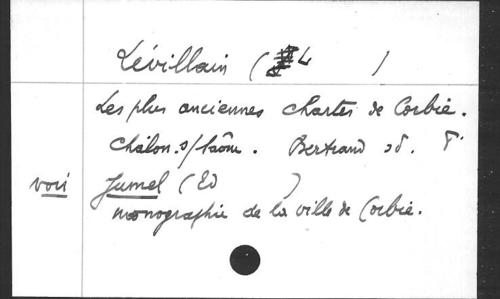 Lévillain ( L )
Les plus anciennes chartes de Corbie.
Châlon. s/ Saône. Bertrand éd.
voir Jumel (Ed )
monographie de la ville de Corbie.